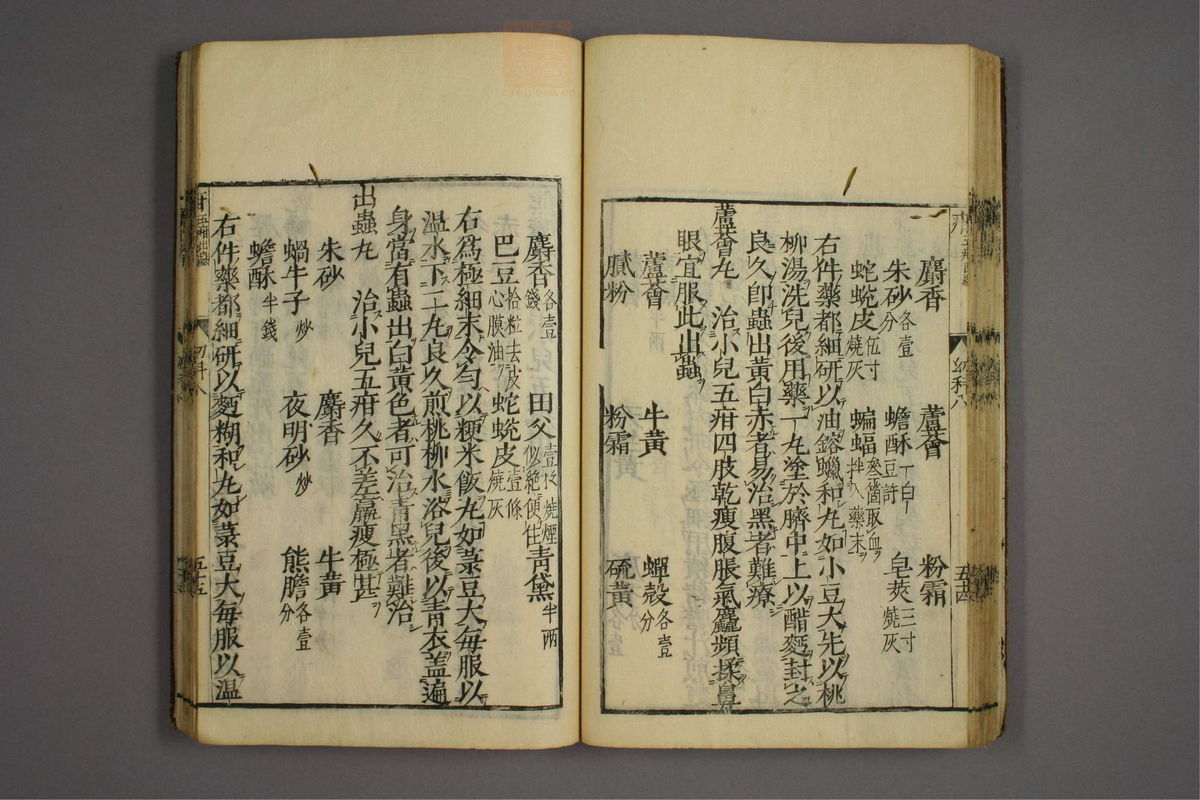 麝香　蘆薈　粉霜
朱砂各壹分　蟾酥一白豆許　皂莢三寸燒灰
蛇蛻皮伍寸燒灰　蝙蝠叄箇取血拌入藥末
右件藥都細研以油鎔蠟和丸如小豆大先以桃
柳湯洗兒後用藥一丸塗於臍中上以醋麪封之
良久卽蟲出黃白赤者易治黑者難療
蘆薈丸　治小兒五疳四肢乾瘦腹脹氣麤頻揉鼻
眼宜服此出蟲
蘆薈　牛黃　蟬殼各壹分
膩粉　粉霜　硫黃
五十四
麝香各壹錢　田父壹枚燒煙似絕便住　青黛半兩
巴豆拾粒去皮心膜油　蛇蛻皮壹條燒灰
右爲極細末令勻以粳米飯丸如菉豆大每服以
溫水下二丸良久煎桃柳水浴兒後以青衣盖遍
身當有蟲出白黃色者可治青黑者難治
出蟲丸　治小兒五疳久不差羸瘦極甚
朱砂　麝香　牛黃
蝸牛子炒　夜明砂炒　熊膽各壹分
蟾酥半錢
右件藥都細研以麪糊和丸如菉豆大每服以溫
五十五